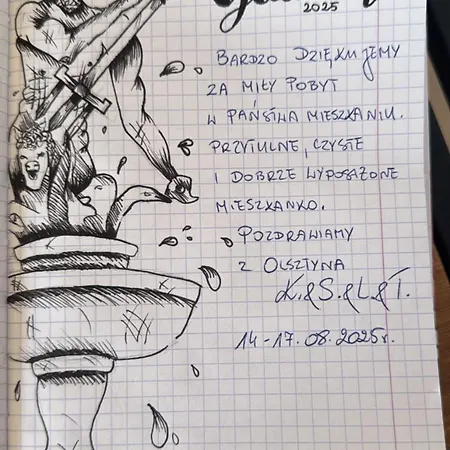 2025
BARDZO DZIĘKUJEMY
ZA MIŁY POBYT
W PAŃSTWA MIESZKANIU.
PRZYTULNE, CZYSTE
I DOBRZE WYPOSAŻONE
MIESZKANKO.
POZDRAWIAMY
Z OLSZTYNA
K.&S.&L&T.
14-17.08.2025r.